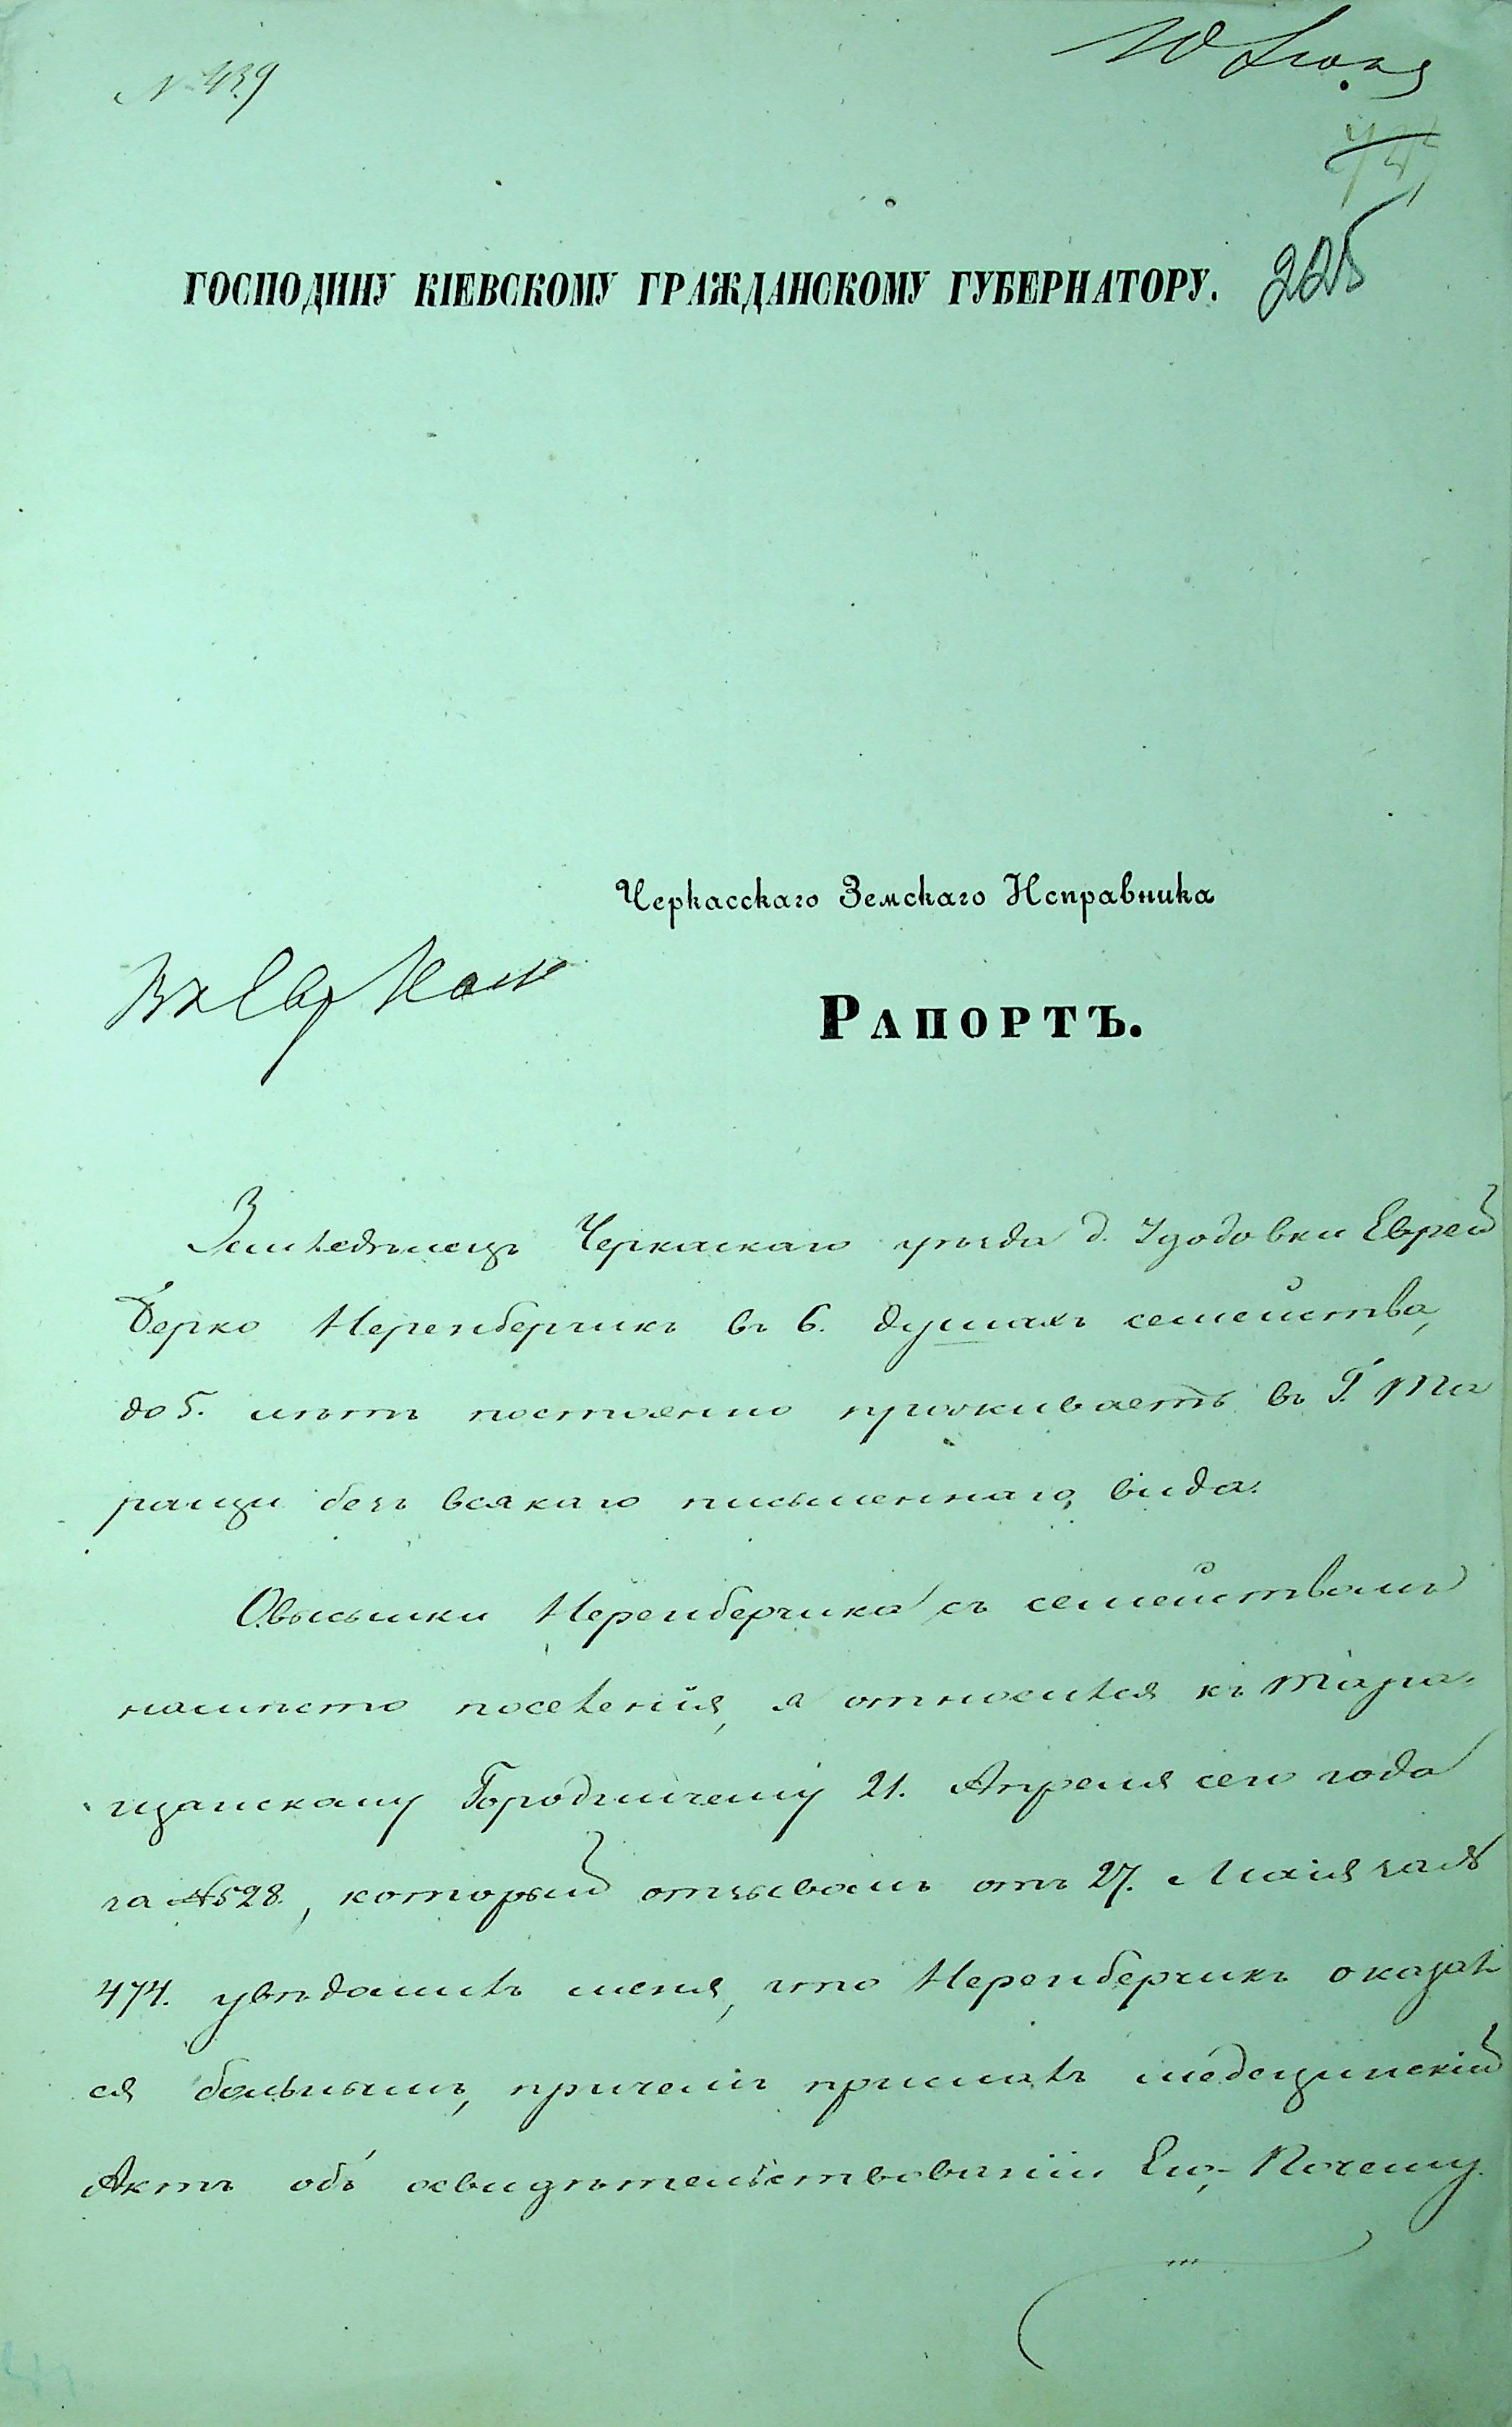 № 439
10 Іюня
225
ГОСПОДИНУ КІЕВСКОМУ ГРАЖДАНСКОМУ ГУБЕРНАТОРУ.
Черкасскаго Земскаго Исправника
РАПОРТЪ.
Земледѣлецъ Черкаскаго уѣзда д. Удодовки Еврей
Берко Неренберчикъ въ 6. душахъ семейства,
до 5. лѣтъ постоянно проживаетъ въ Г. Та
ращи безъ всякаго письменнаго вида.
О высылки Неренберчика съ семействомъ
на мѣсто поселенія, я относился къ Тара-
щанскому Городничему 21. Апреля сего года
за № 528., который отзывомъ отъ 27. Маія за №
474. увѣдомилъ меня, что Неренберчикъ оказал
ся больнымъ, причемъ прислалъ медецинскій
Актъ объ освидѣтельствованіи Его,- Почему